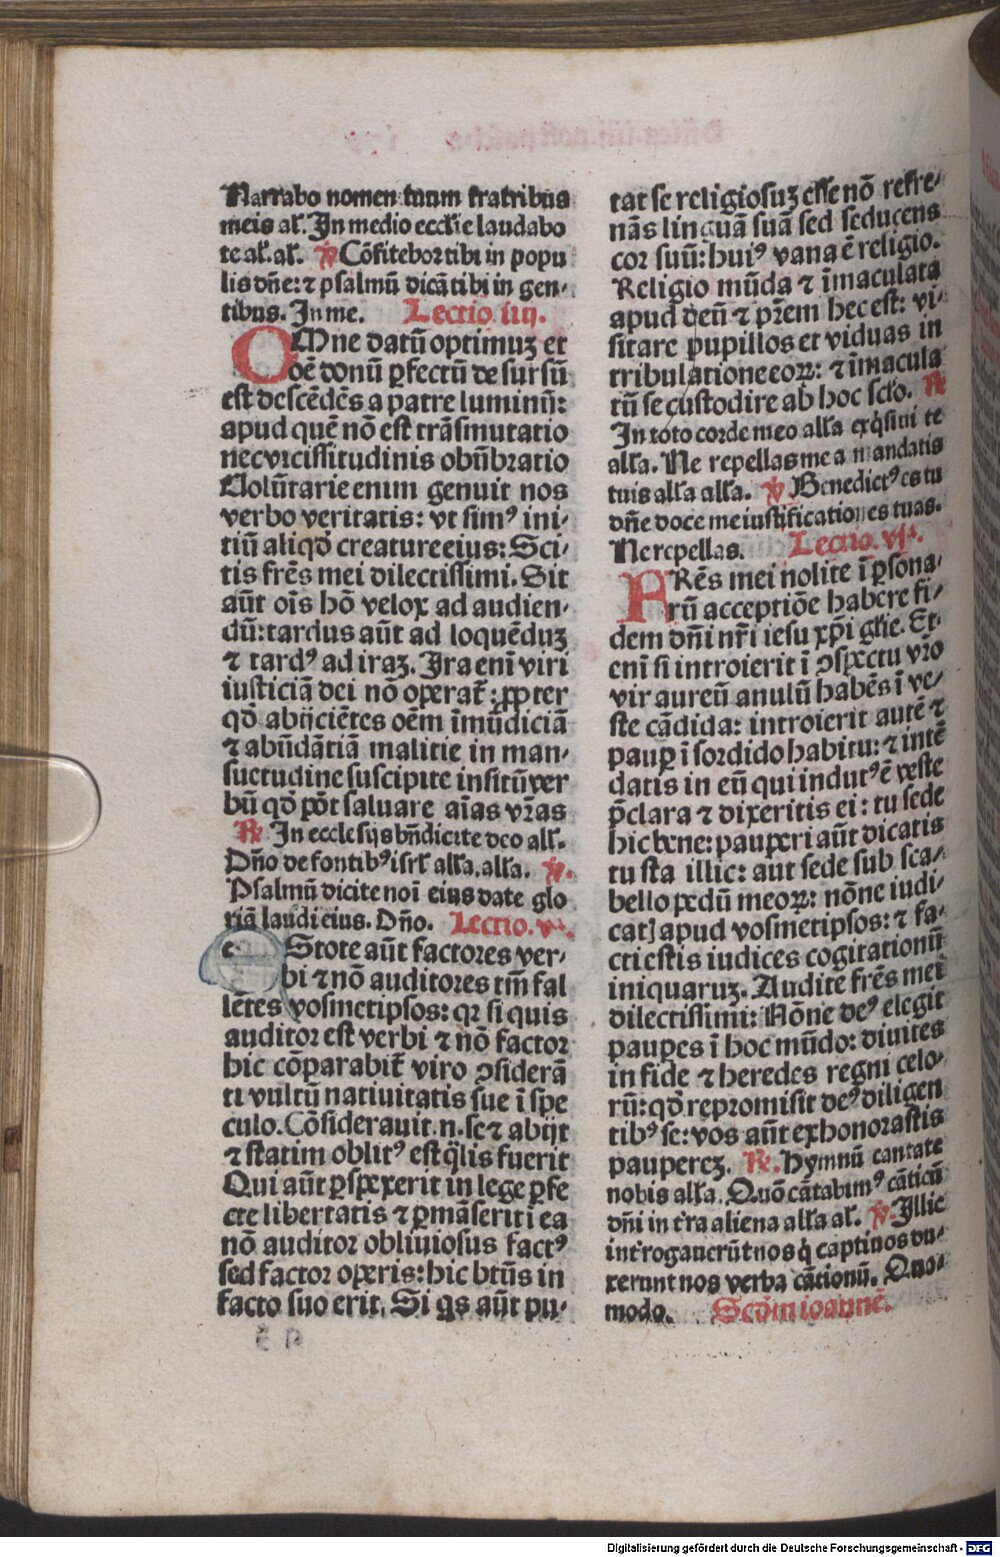 Narrabo nomen tuum fratribus
meis al'. In medio ecclie laudabo
te al'. al'. ℣ Cōfitebor tibi in popu
lis dn̄e: ⁊ psalmū dicā tibi in gen-
tibus. In me. Lectio iiij.
OMne datū optimuꝫ et
oē donū ꝑfectū de sursū
est descēdēs a patre luminū:
apud quē nō est trāsmutatio
nec vicissitudinis obūbratio
Volūtarie enim genuit nos
verbo veritatis: vt simꝰ ini-
tiū aliqd̄ creature eius: Sci-
tis frēs mei dilectissimi. Sit
aūt oīs hō velox ad audien-
dū: tardus aūt ad loquēduꝫ
⁊ tardꝰ ad iraꝫ. Ira enī viri
iusticiā dei nō operat̄: ꝓpter
qd̄ abijciētes oēm īmūdiciā
⁊ abūdātiā malitie in man-
suetudine suscipite insitū ver
bū qd̄ pōt saluare aīas vr̄as
℟ In ecclesijs bn̄dicite deo all'.
Dn̄o de fontibꝰ isrl' alla. alla. ℣.
Psalmū dicite noī eius date glo
riā laudi eius. Dn̄o. Lectio. v.
eStote aūt factores ver-
bi ⁊ nō auditores tm̄ fal
lētes vosmetipsos: qr si quis
auditor est verbi ⁊ nō factor
hic cōparabit̄ viro ꝯsiderā
ti vultū natiuitatis sue ī spe
culo. Cōsiderauit .n. se ⁊ abijt
⁊ statim oblitꝰ est q̄lis fuerit
Qui aūt ꝑspexerit in lege ꝑfe
cte libertatis ⁊ ꝑmāserit i ea
nō auditor obliuiosus factꝰ
sed factor operis: hic btūs in
facto suo erit. Si qs aūt pu-
tat se religiosuꝫ esse nō refre-
nās linguā suā sed seducens
cor suū: huiꝰ vana ē religio.
Religio mūda ⁊ īmaculata
apud deū ⁊ pr̄em hec est: vi-
sitare pupillos et viduas in
tribulatione eoꝝ: ⁊ īmacula
tū se custodire ab hoc sclo. ℟
In toto corde meo alla exq̄siui te
alla. Ne repellas me a mandatis
tuis alla alla. ℣ Benedictꝰ es tu
dn̄e doce me iustificationes tuas.
Ne repellas. Lectio. vj.
FRēs mei nolite ī ꝑsona-
rū acceptiōe habere fi-
dem dn̄i nr̄i iesu xp̄i gl̄ie. Et-
enī si introierit ī ꝯspectu vr̄o
vir aureū anulū habēs ī ve-
ste cādida: introierit autē ⁊
pauꝑ ī sordido habitu: ⁊ intē
datis in eū qui indutꝰ ē veste
p̄clara ⁊ dixeritis ei: tu sede
hic bene: pauperi aūt dicatis
tu sta illic: aut sede sub sca-
bello pedū meoꝝ: nōne iudi-
cat] apud vosmetipsos: ⁊ fa-
cti estis iudices cogitationū
iniquaruꝫ. Audite frēs mei
dilectissimi: Nōne deꝰ elegit
pauꝑes ī hoc mūdo: diuites
in fide ⁊ heredes regni celo-
rū: qd̄ repromisit deꝰ diligen
tibꝰ se: vos aūt exhonorastis
paupereꝫ. ℟. Hymnū cantate
nobis alla. Quō cātabimꝰ cāticū
dn̄i in tr̄a aliena alla al'. ℣. Illic
int'rogauerūt nos q̄ captiuos du-
xerunt nos verba cātionū. Quo-
modo. Scd̄m ioannē.
Digitalisierung gefördert durch die Deutsche Forschungsgemeinschaft - DFG